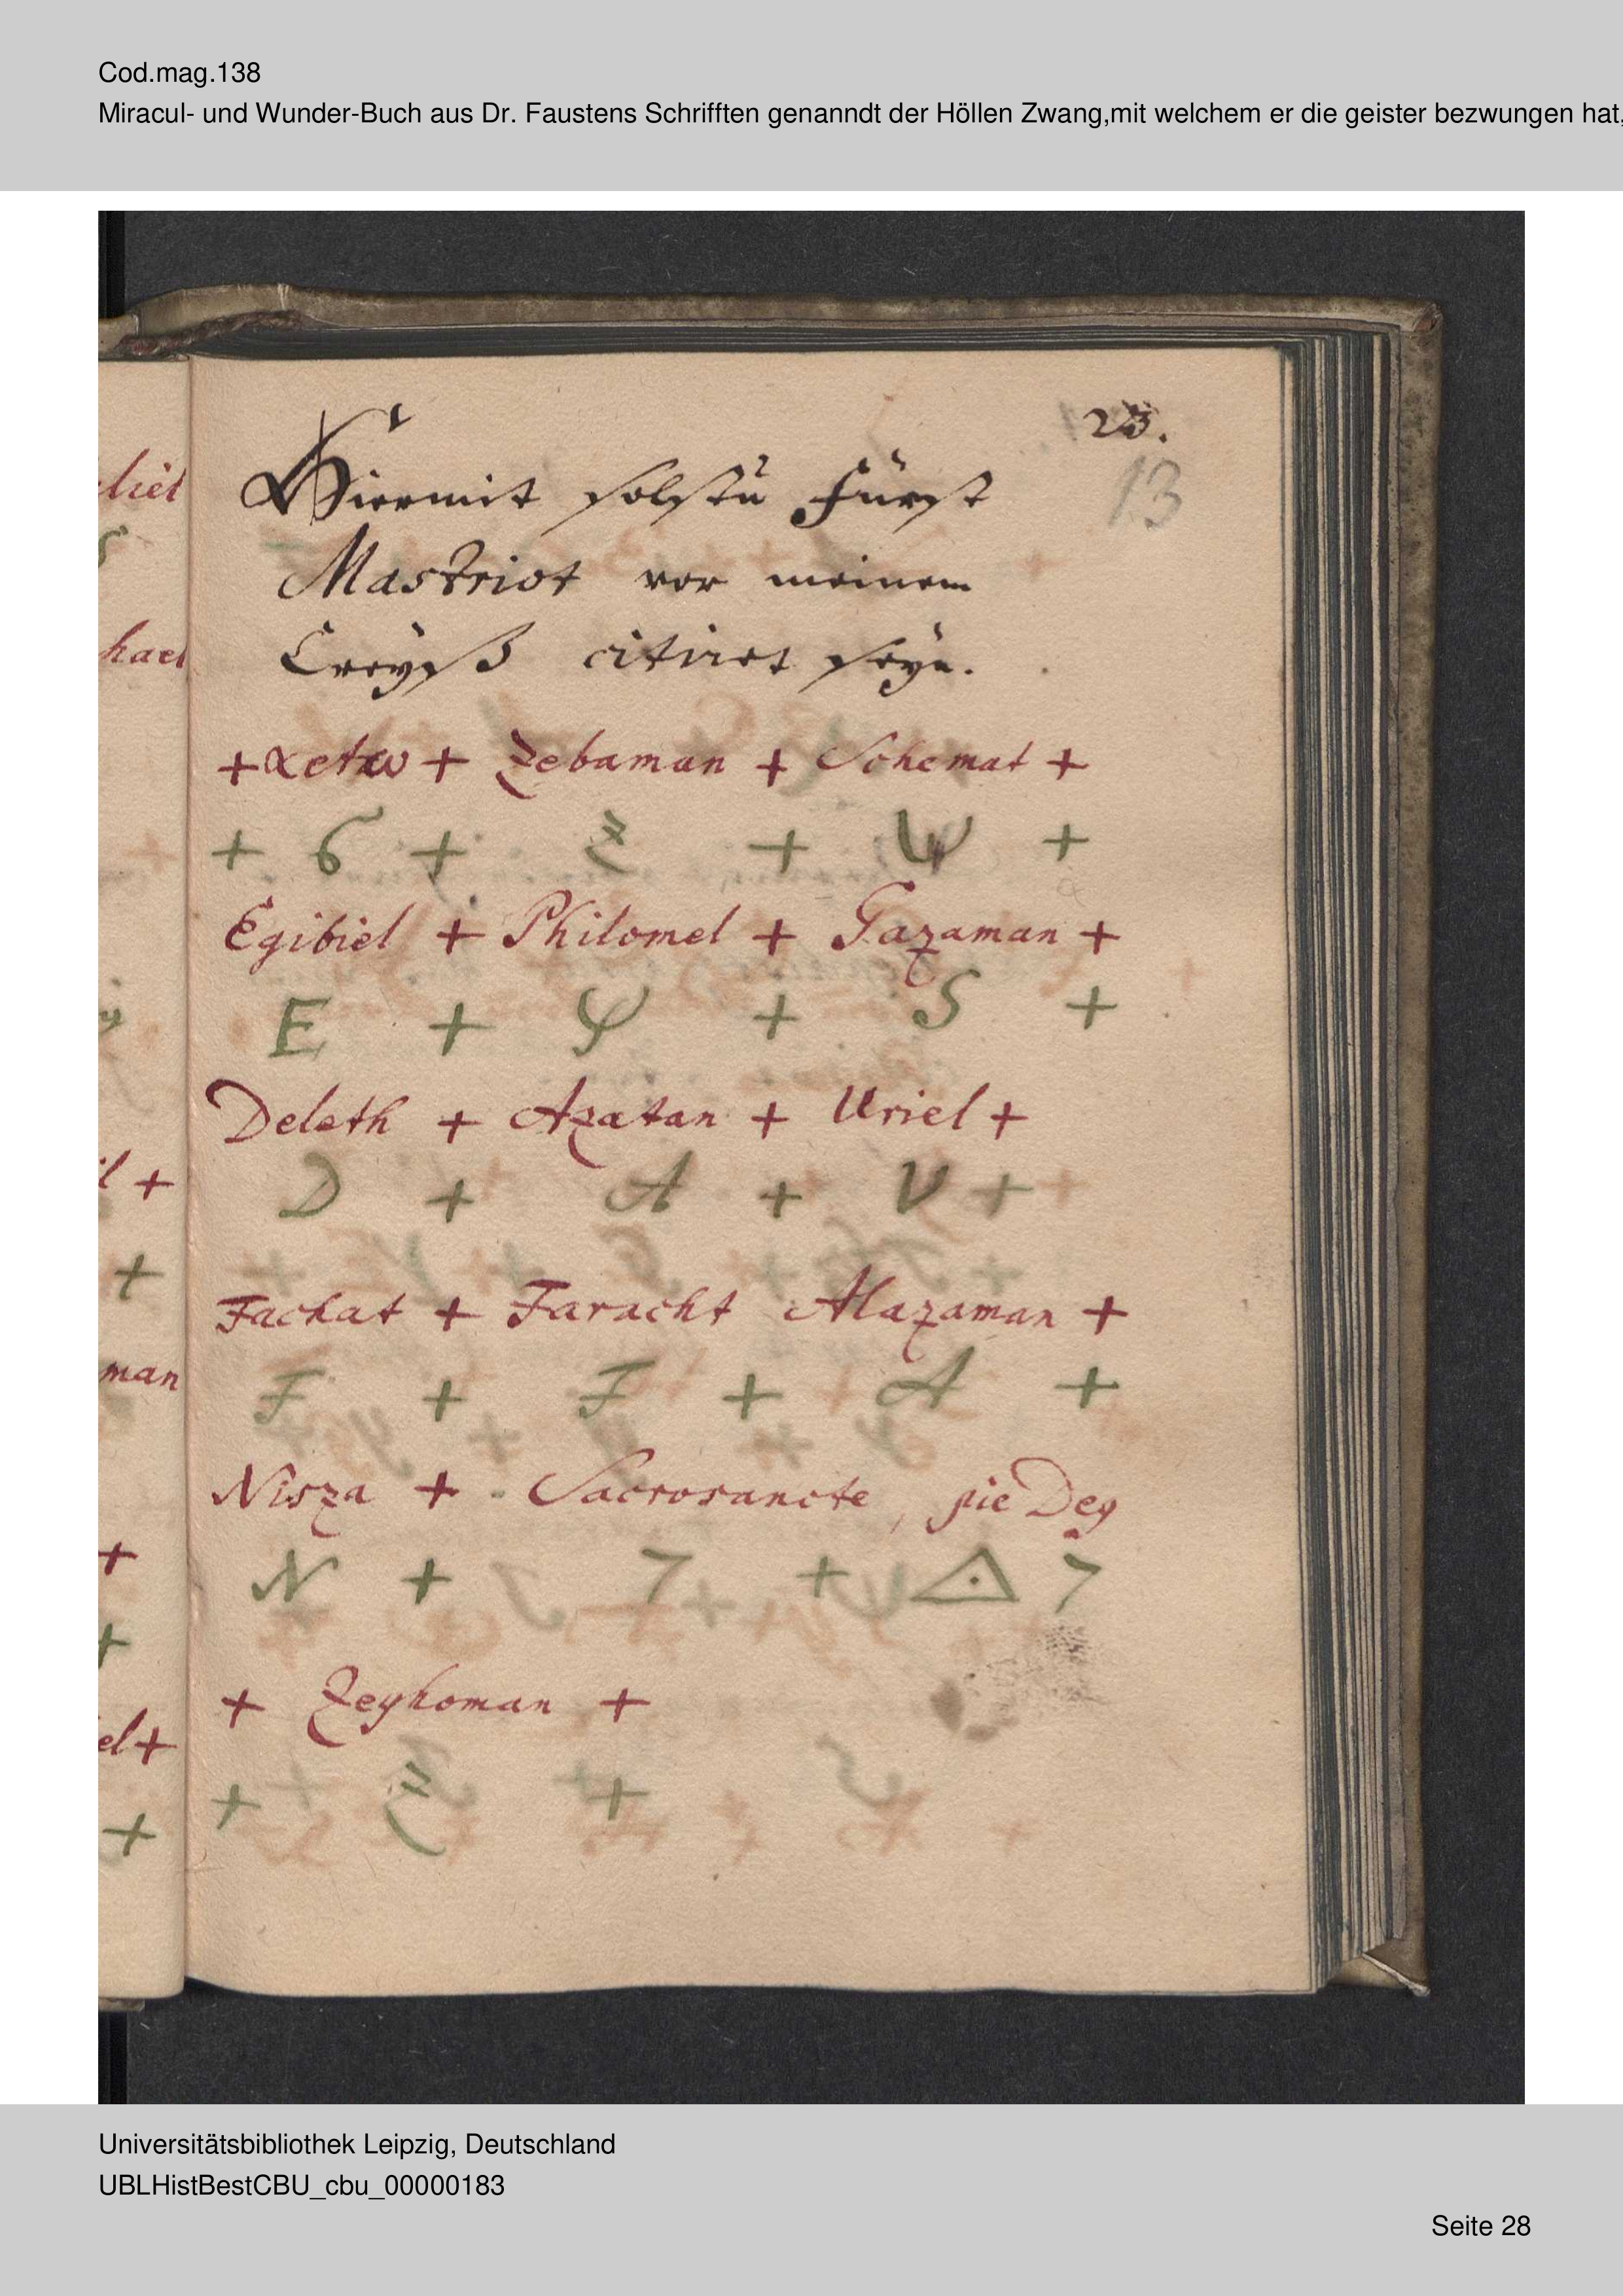 Cod.mag.138
Miracul- und Wunder-Buch aus Dr. Faustens Schrifften genanndt der Höllen Zwang,mit welchem er die geister bezwungen hat,
23.
13
Hiermit solstu Fürst
Mastriot vor meinem
Creyß citiret seyn.
+ + Zebaman + Schemat +
+ 6 + Z + Ψ +
Egibiel + Philomel + Gazaman +
E + Ψ + S +
Deleth + Azatan + Uriel +
D + A + V +
Fachat + Faracht Alazaman +
F + F + A +
Nisza + Sacrosancte, pie Dey
N + 7 + 7
+ Zeyhoman +
+ Z +
liel
hael
l +
+
man
+
+
el +
+
Universitätsbibliothek Leipzig, Deutschland
UBLHistBestCBU_cbu_00000183
Seite 28